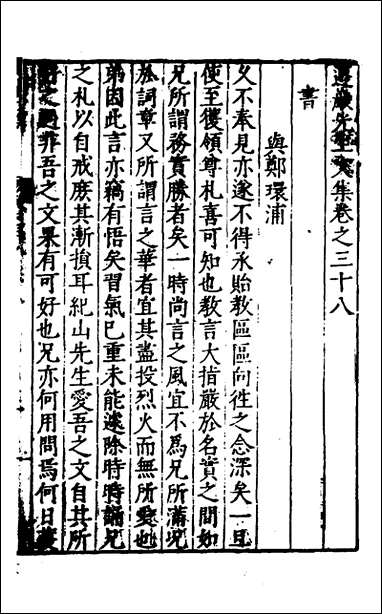 遵巖先生文集卷之三十八
書
與鄭環浦
久不奉見亦遂不得承貽教區區向徃之念深矣一旦
使至獲領尊札喜可知也教言大指嚴於名實之間如
兄所謂務實勝者矣一時尚言之風宜不為兄所滿况
於詞章又所謂言之華者宜其盡投烈火而無所愛也
弟因此言亦竊有悟矣習氣已重未能遽除時時誦兄
之札以自戒庶其漸損耳紀山先生愛吾之文自其所
非吾之文果有可好也兄亦何用問焉何日